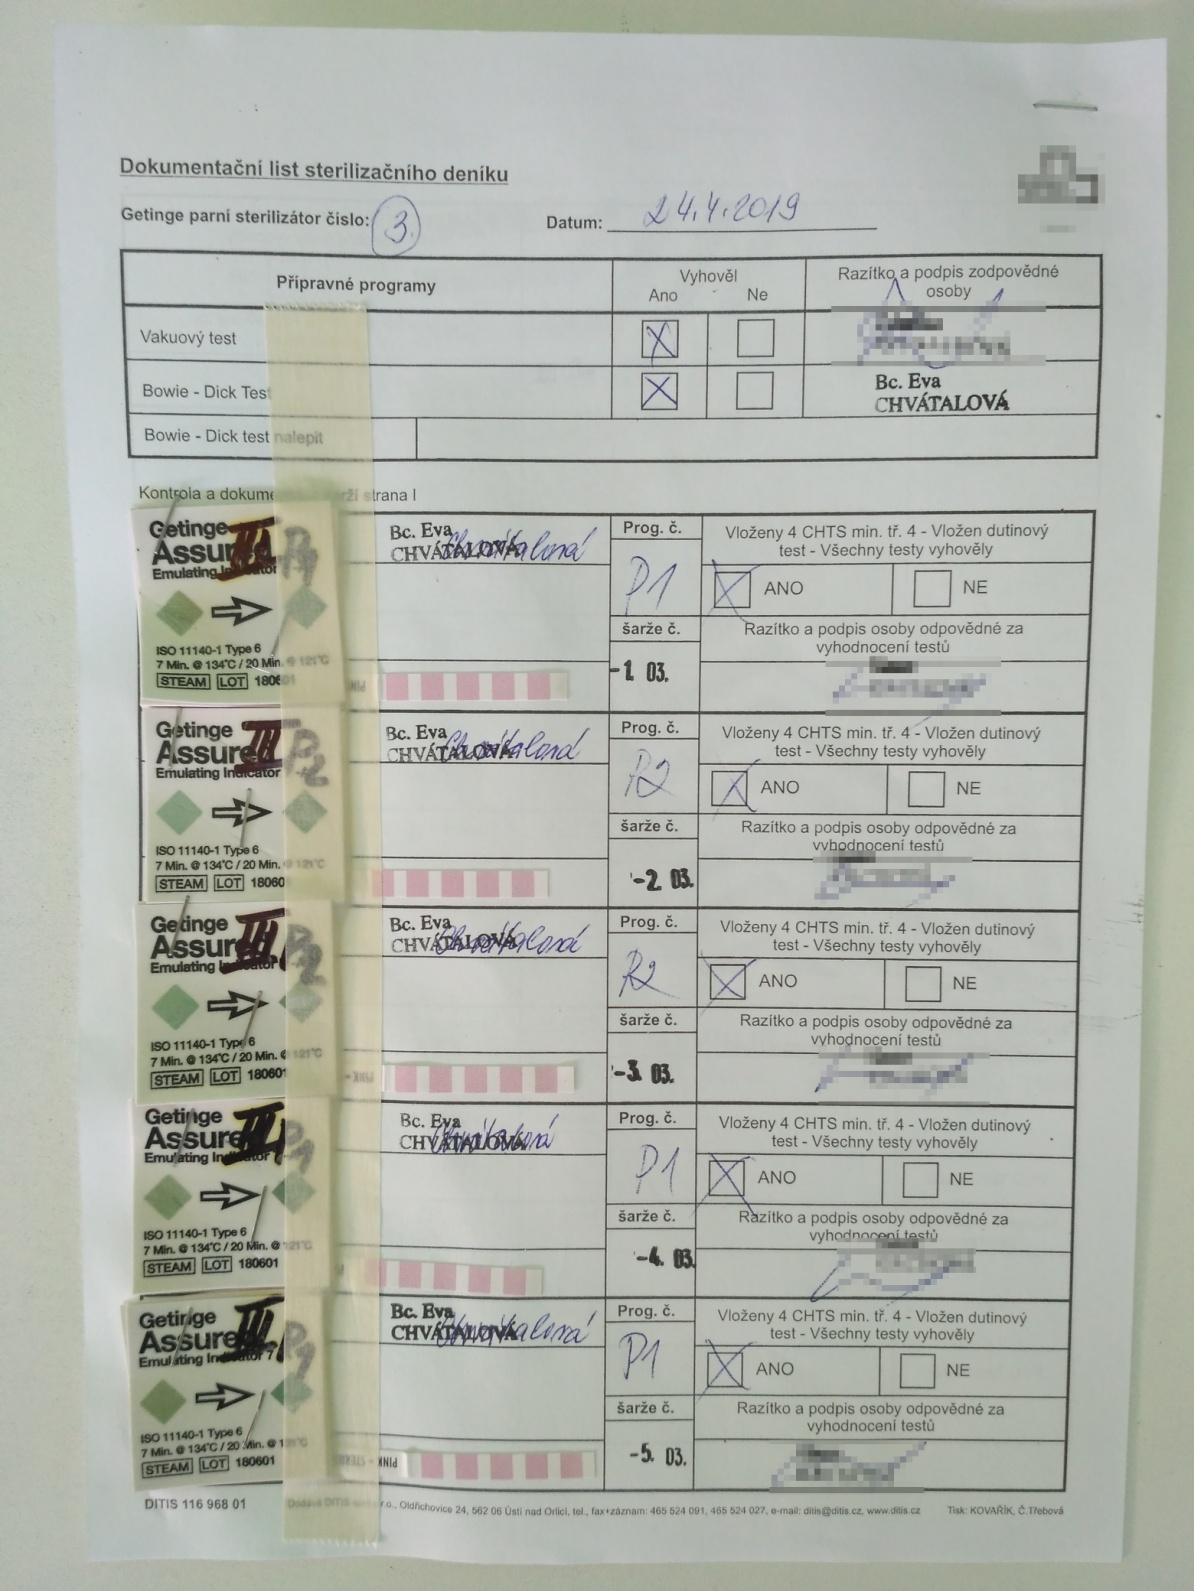 Dokumentační list sterilizačního deníku
Getinge parní sterilizátor číslo: 3.
Datum: 24.4.2019
Přípravné programy
Vyhověl
Ano Ne
Razítko a podpis zodpovědné
osoby
Vakuový test
X
Bowie - Dick Test
X
Bc. Eva
CHVÁTALOVÁ
Bowie - Dick test nalepit
Kontrola a dokume rží strana I
Getinge
Assured
Emulating Indicator
III. P1
ISO 11140-1 Type 6
7 Min. @ 134°C / 20 Min. @ 121°C
STEAM LOT 180601
Bc. Eva
CHVÁTALOVÁ Chvátalová
PINK
Prog. č.
P1
šarže č.
-1. 03.
Vloženy 4 CHTS min. tř. 4 - Vložen dutinový
test - Všechny testy vyhověly
X ANO NE
Razítko a podpis osoby odpovědné za
vyhodnocení testů
Getinge
Assured
Emulating Indicator
III P2
ISO 11140-1 Type 6
7 Min. @ 134°C / 20 Min. @ 121°C
STEAM LOT 18060
Bc. Eva
CHVÁTALOVÁ Chvátalová
Prog. č.
P2
šarže č.
-2. 03.
Vloženy 4 CHTS min. tř. 4 - Vložen dutinový
test - Všechny testy vyhověly
X ANO NE
Razítko a podpis osoby odpovědné za
vyhodnocení testů
Getinge
Assured
Emulating Indicator
III. P2
ISO 11140-1 Type 6
7 Min. @ 134°C / 20 Min. @ 121°C
STEAM LOT 180601
Bc. Eva
CHVÁTALOVÁ Chvátalová
PINK -
Prog. č.
P2
šarže č.
-3. 03.
Vloženy 4 CHTS min. tř. 4 - Vložen dutinový
test - Všechny testy vyhověly
X ANO NE
Razítko a podpis osoby odpovědné za
vyhodnocení testů
Getinge
Assured
Emulating Indicator
III. P1
ISO 11140-1 Type 6
7 Min. @ 134°C / 20 Min. @ 121°C
STEAM LOT 180601
Bc. Eva
CHVÁTALOVÁ Chvátalová
Prog. č.
P1
šarže č.
-4. 03.
Vloženy 4 CHTS min. tř. 4 - Vložen dutinový
test - Všechny testy vyhověly
X ANO NE
Razítko a podpis osoby odpovědné za
vyhodnocení testů
Getinge
Assured
Emulating Indicator
III. P1
ISO 11140-1 Type 6
7 Min. @ 134°C / 20 Min. @ 121°C
STEAM LOT 180601
Bc. Eva
CHVÁTALOVÁ Chvátalová
PINK - STERIL
Prog. č.
P1
šarže č.
-5. 03.
Vloženy 4 CHTS min. tř. 4 - Vložen dutinový
test - Všechny testy vyhověly
X ANO NE
Razítko a podpis osoby odpovědné za
vyhodnocení testů
DITIS 116 968 01
Dodává DITIS r.o., Oldřichovice 24, 562 06 Ústí nad Orlicí, tel., fax+záznam: 465 524 091, 465 524 027, e-mail: ditis@ditis.cz, www.ditis.cz
Tisk: KOVAŘÍK, Č.Třebová